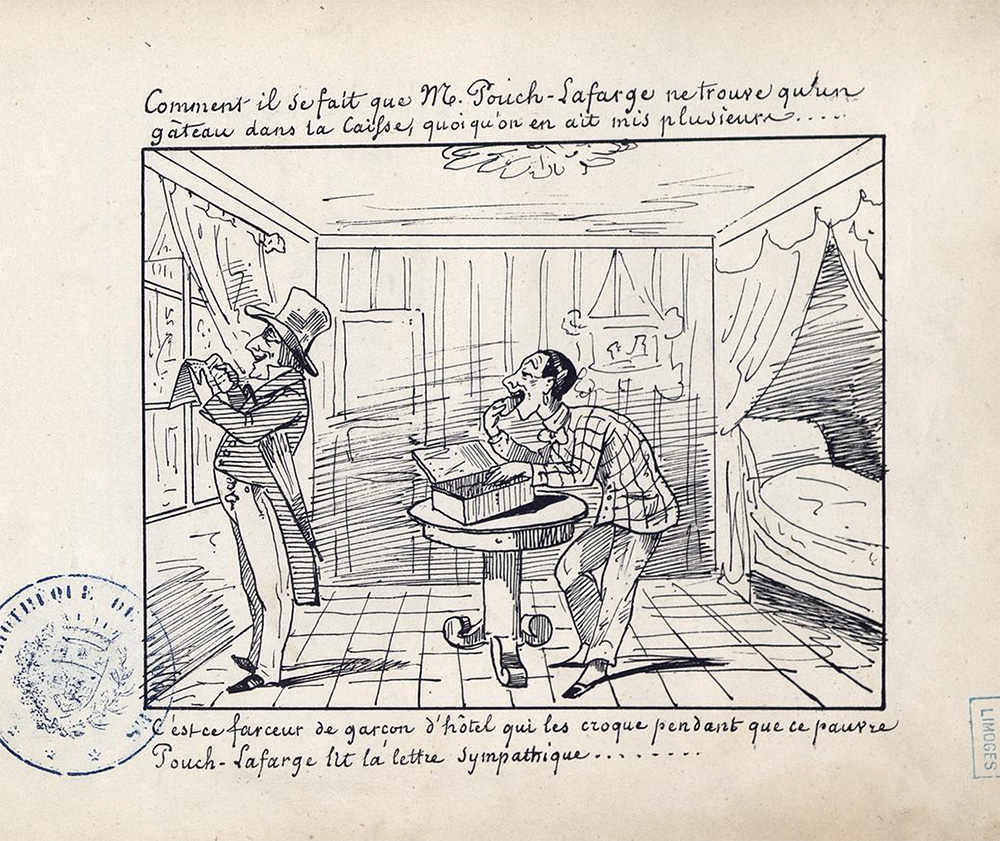 Comment il se fait que M. Pouch-Lafarge ne trouve qu'un
gâteau dans la Caisse, quoiqu'on en ait mis plusieurs.....
C'est ce farceur de garçon d'hôtel qui les croque pendant que ce pauvre
Pouch-Lafarge lit la lettre sympathique........
BIBLIOTHÈQUE DE
LIMOGES